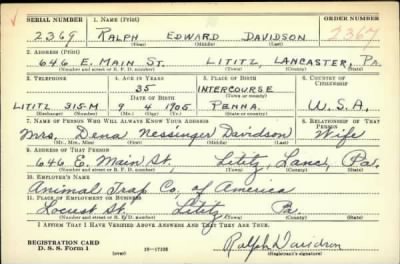 SERIAL NUMBER 1. NAME (Print) ORDER NUMBER
2369 RALPH EDWARD DAVIDSON 2367
(First) (Middle) (Last)
2. ADDRESS (Print)
646 E. MAIN ST. LITITZ, LANCASTER, PA.
(Number and street or R. F. D. number) (Town) (County) (State)
3. TELEPHONE 4. AGE IN YEARS 5. PLACE OF BIRTH 6. COUNTRY OF CITIZENSHIP
35 INTERCOURSE
DATE OF BIRTH (Town or county)
LITITZ 315-M 9 4 1905 PENNA. U.S.A.
(Exchange) (Number) (Mo.) (Day) (Yr.) (State or country)
7. NAME OF PERSON WHO WILL ALWAYS KNOW YOUR ADDRESS 8. RELATIONSHIP OF THAT PERSON
Mrs. Dena Nessinger Davidson Wife
(Mr., Mrs., Miss) (First) (Middle) (Last)
9. ADDRESS OF THAT PERSON
646 E. Main St, Lititz, Lanc, Pa.
(Number and street or R. F. D. number) (Town) (County) (State)
10. EMPLOYER'S NAME
Animal Trap Co, of America
11. PLACE OF EMPLOYMENT OR BUSINESS
Locust St, Lititz Pa.
(Number and street or R. F. D. number) (Town) (County) (State)
I AFFIRM THAT I HAVE VERIFIED ABOVE ANSWERS AND THAT THEY ARE TRUE.
REGISTRATION CARD
D. S. S. Form 1 (over) 16-17105 Ralph Davidson
(Registrant's signature)